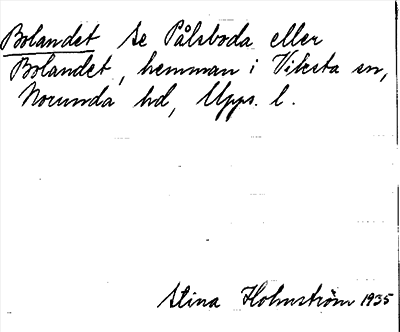 Bolandet se Pålsboda eller
Bolandet, hemman i Viksta sn,
Norunda hd, Upps. l.
Stina Holmström 1935